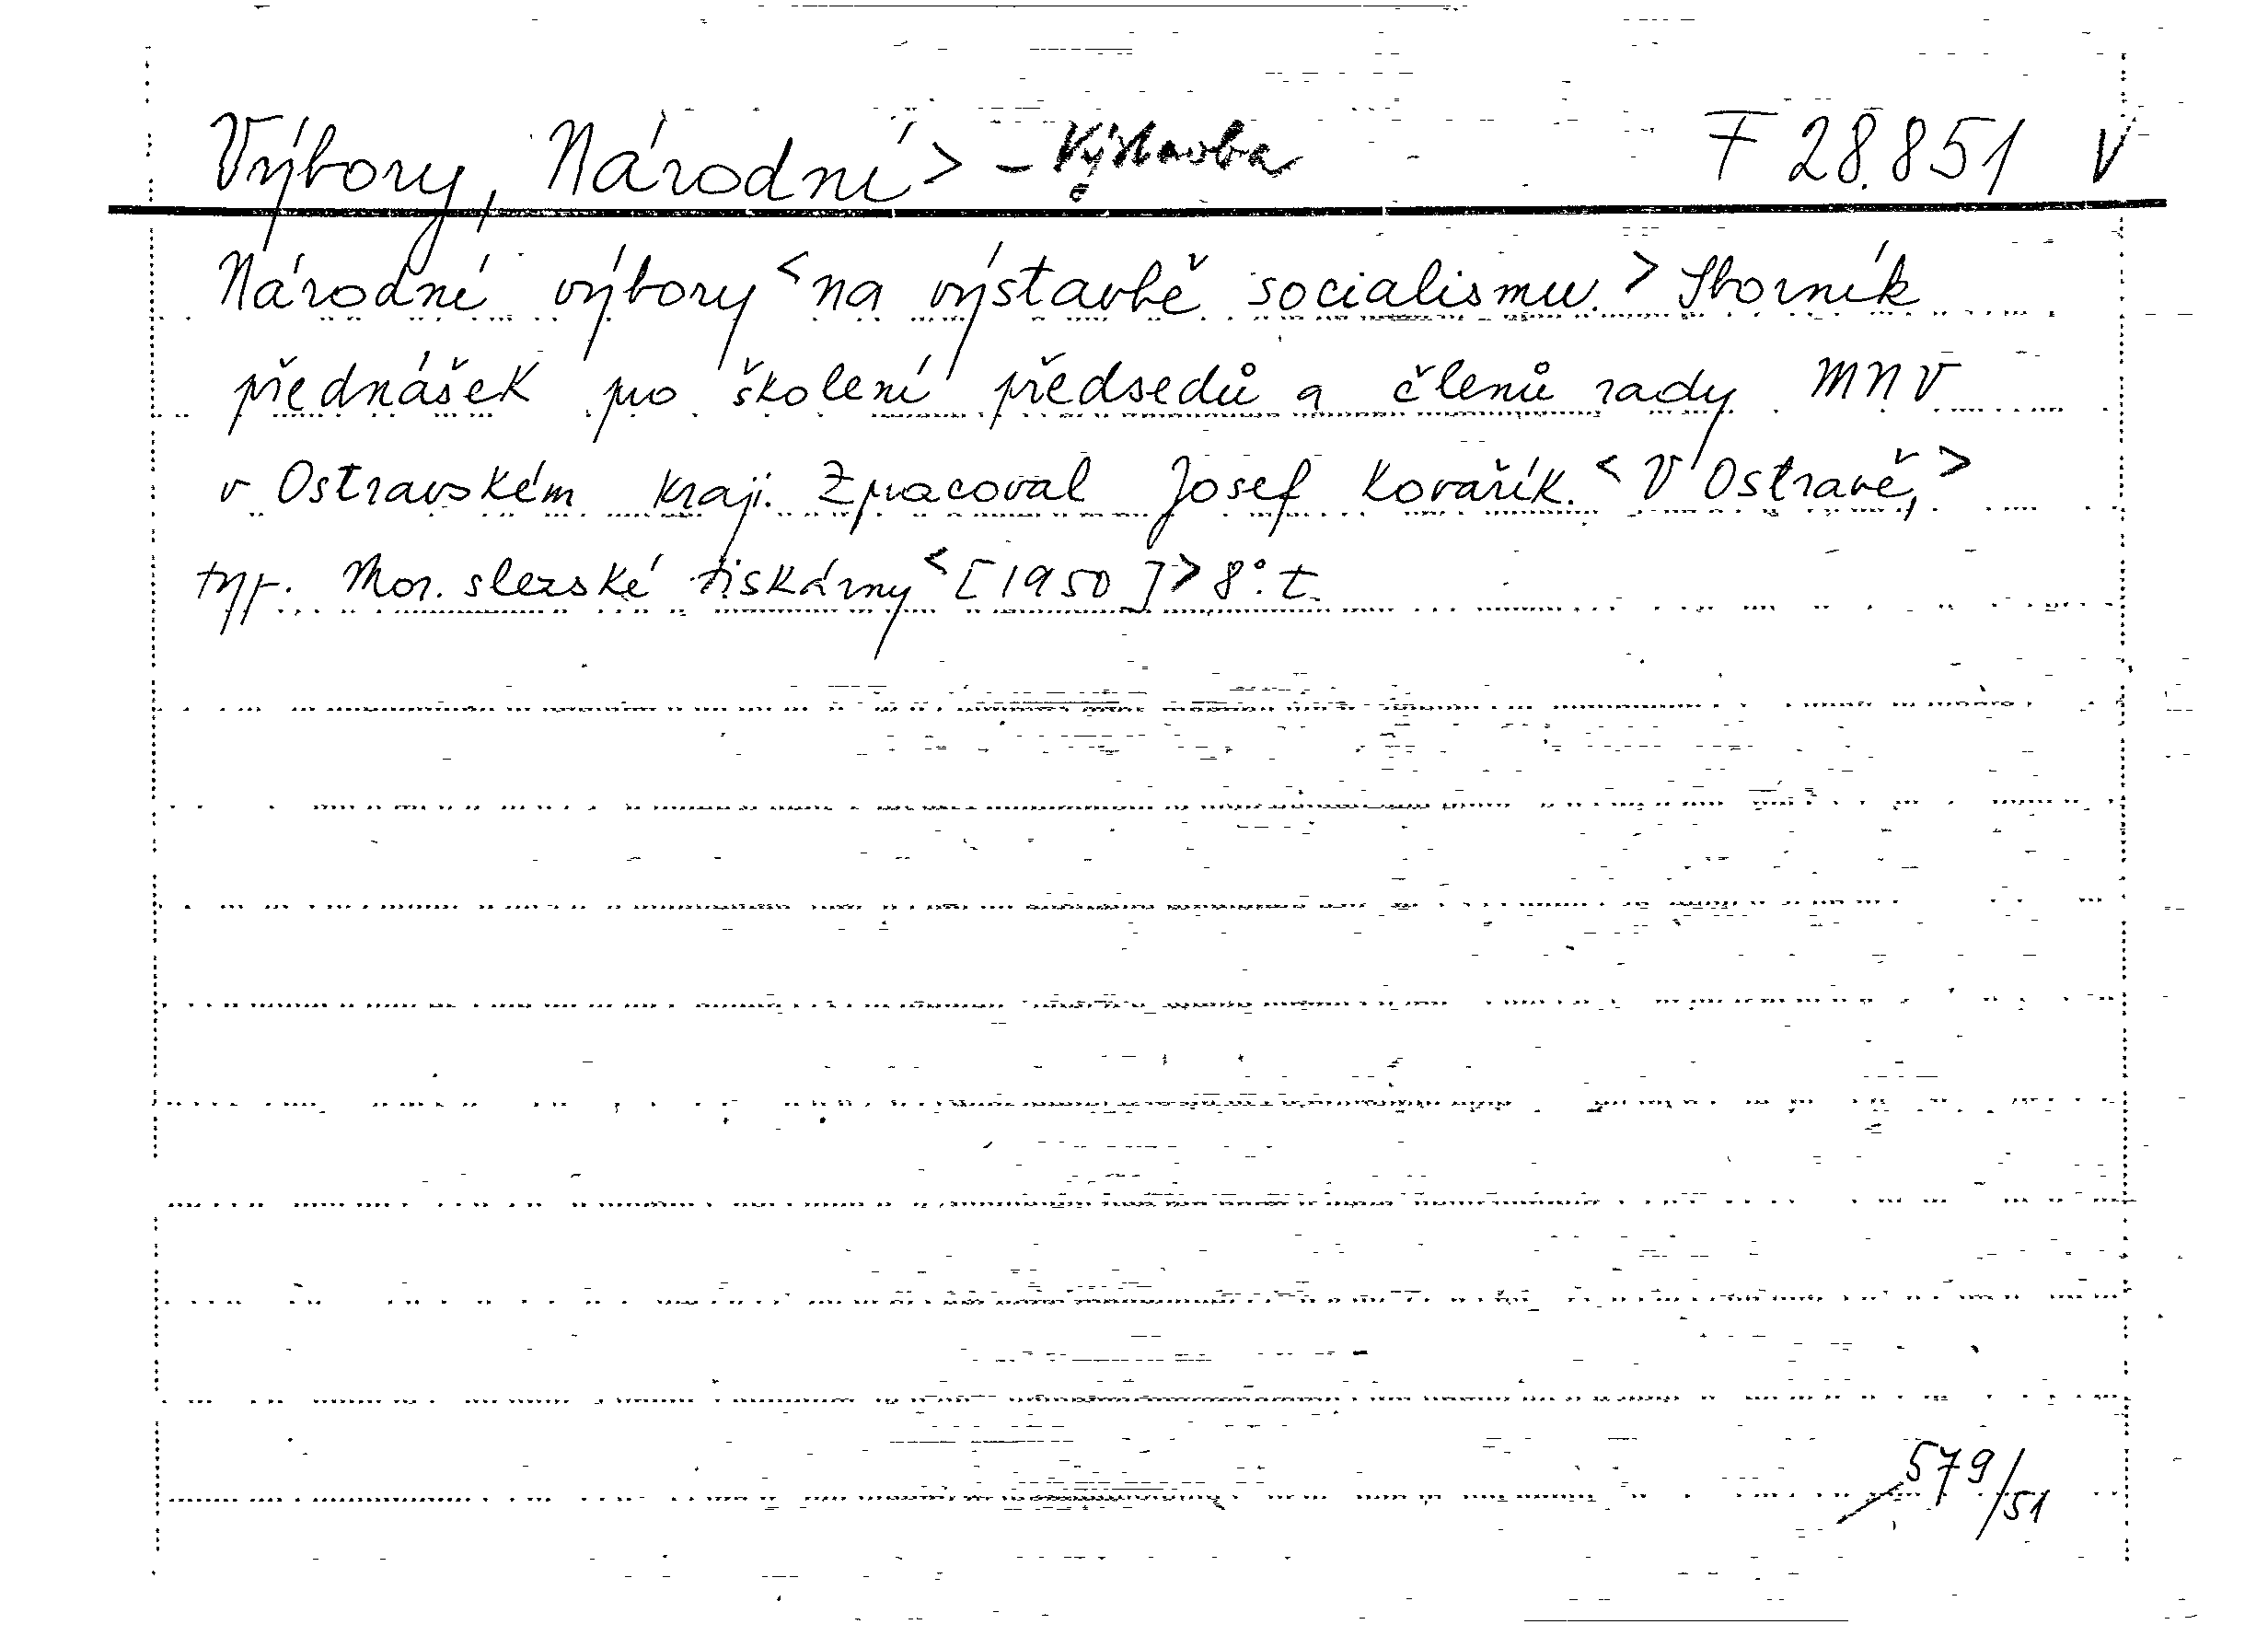 Výbory, Národní > - Výstavba F 28.851 V
Národní výbory < na výstavbě socialismu. > Sborník
přednášek pro školení předsedů a členů rady MNV
v Ostravském kraji. Zpracoval Josef Kovařík. < V Ostravě, >
typ. Mor. slezské tiskárny < [1950] > 8°. t.
579/51